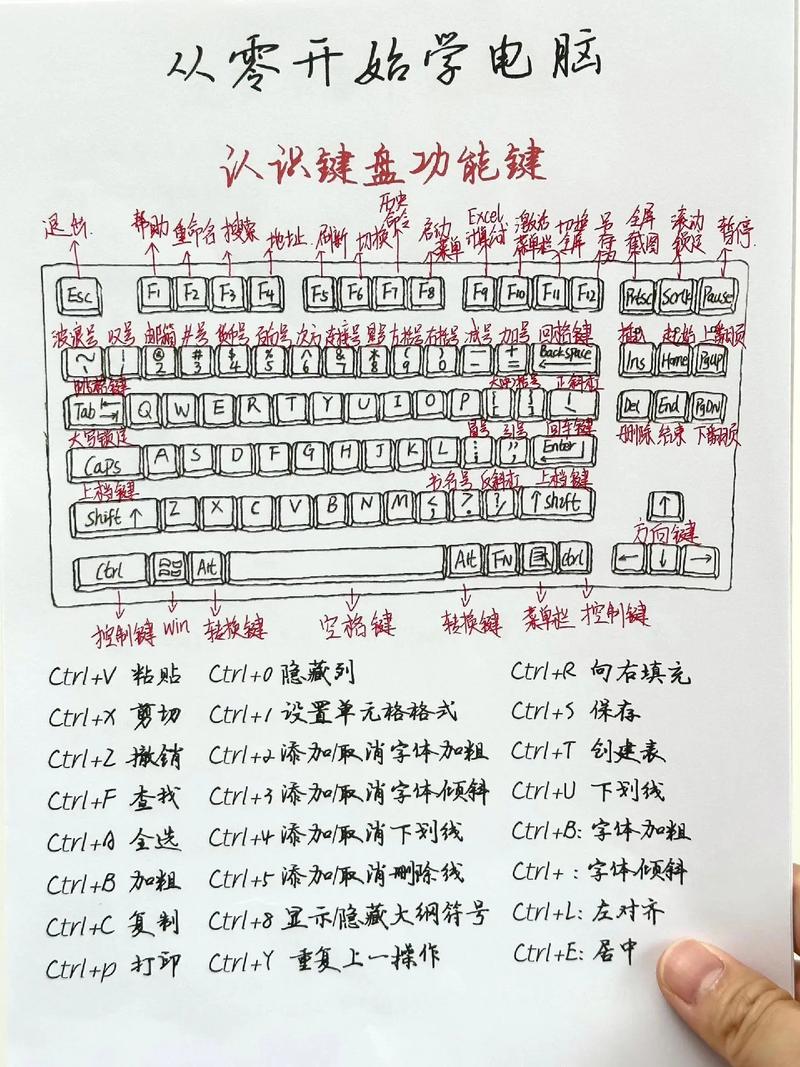 从零开始学电脑
认识键盘功能键
退出 帮助 重命名 搜索 地址 刷新 切换 历史命令 启动菜单 Excel计算公式 激活菜单栏 切换全屏 另存为 全屏截图 滚动锁定 暂停
Esc F1 F2 F3 F4 F5 F6 F7 F8 F9 F10 F11 F12 Prtsc Scrlk Pause
波浪号 叹号 邮箱 井号 货币号 百分号 次方 连接号 星号 左括号 右括号 减号 加号 回格键 插入 起始 上翻页
~ ! @ 2 # 3 $ 4 % 5 ^ 6 & 7 * 8 ( 9 ) 0 - + = Back space Ins Home PgUp
跳格键 大中括号 正斜杠
Tab Q W E R T Y U I O P Del End PgDn
大写锁定 冒号 引号 回车键 删除 结束 下翻页
Caps A S D F G H J K L Enter
上档键 书名号 反斜杠
Shift ↑ Z X C V B N M ↑ Shift ↑
方向键
Ctrl Alt Alt FN Ctrl ← ↓ →
控制键 Win 转换键 空格键 转换键 菜单栏 控制键
Ctrl+V 粘贴 Ctrl+0 隐藏列 Ctrl+R 向右填充
Ctrl+X 剪切 Ctrl+1 设置单元格格式 Ctrl+S 保存
Ctrl+Z 撤销 Ctrl+2 添加/取消字体加粗 Ctrl+T 创建表
Ctrl+F 查找 Ctrl+3 添加/取消字体倾斜 Ctrl+U 下划线
Ctrl+A 全选 Ctrl+4 添加/取消下划线 Ctrl+B: 字体加粗
Ctrl+B 加粗 Ctrl+5 添加/取消删除线 Ctrl+ : 字体倾斜
Ctrl+C 复制 Ctrl+8 显示/隐藏大纲符号 Ctrl+L: 左对齐
Ctrl+p 打印 Ctrl+Y 重复上一操作 Ctrl+E: 居中